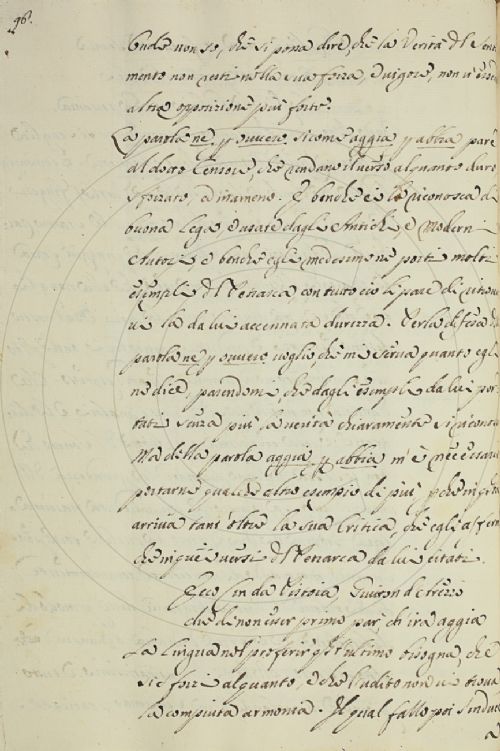 96.
bude non so, che si possa dire, che la Verità dl Senti
mento non resti nella sua forza, e vigore, non vi essen
altra opposizione più forte.
La parola ne, p ovvero, sicome aggia p abbia pare
al dotto Censore, che rendano il verso alquanto duro
sforzato, ed inameno. E benche ei le riconosca di
buona lega e usate dagli Antichi, e Moderni
Autori e benche egli medesimo ne porti molti
esempli dl Petrarca con tutto ciò li pare di ritrova
vi la da lui accennata durezza. Per la difesa d
parola ne p ovvero voglio, che mi serva quanto egli
ne dice, parendomi, che dagli esempli da lui por
tati senza più la verità chiaramente si riconos
Ma della parola aggia p abbia m'è necessario
portarne qualche altro esempio di più, pche in
arriva tant'oltre la sua Critica, che egli afferm
che in quei versi dl Petrarca da lui citati.
Ecco Cin da Pistoia, Guitton d'Arezzo
che di non esser primo par, ch'ira aggia
La lingua nel proferir qst'ultimo bisogna, che
si sforzi alquanto, e che l'udito non vi trova
la compiuta armonia. Il qual fallo poi
a